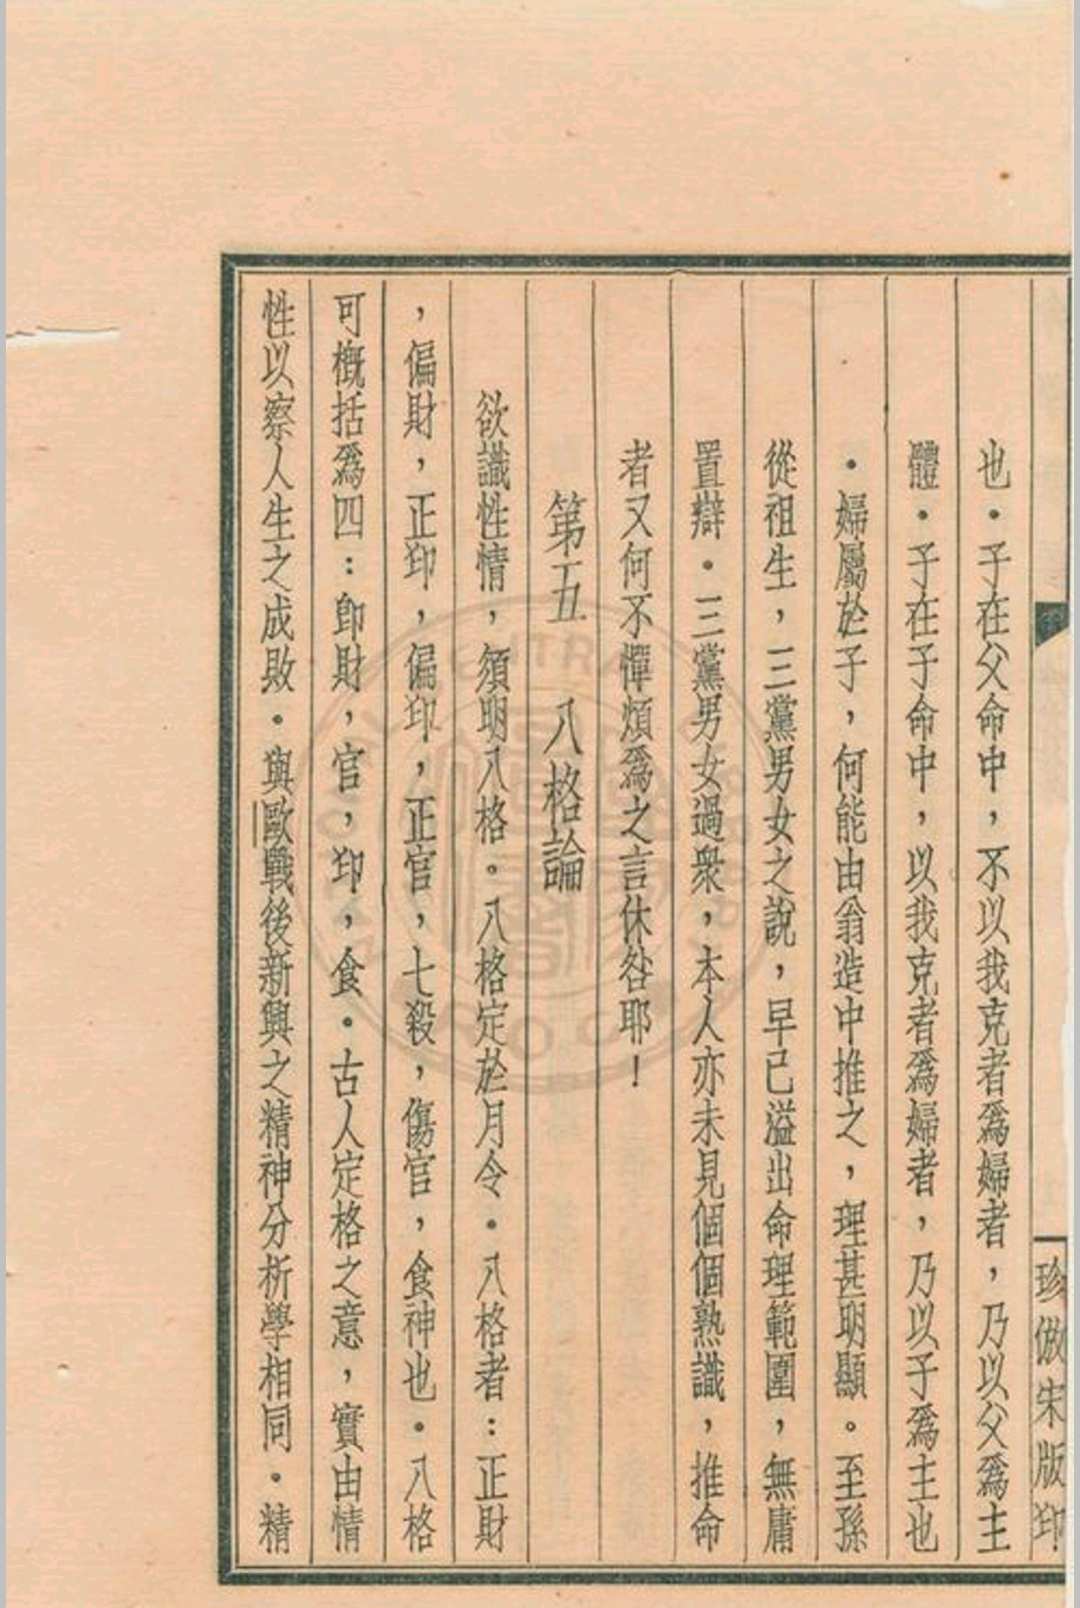 珍倣宋版印
也．子在父命中，不以我克者爲婦者，乃以父爲主
體．子在子命中，以我克者爲婦者，乃以子爲主也
．婦屬於子，何能由翁造中推之，理甚明顯。至孫
從祖生，三黨男女之說，早已溢出命理範圍，無庸
置辯．三黨男女過衆，本人亦未見個個熟識，推命
者又何不憚煩爲之言休咎耶！
第五　八格論
欲識性情，須明八格。八格定於月令．八格者：正財
，偏財，正印，偏印，正官，七殺，傷官，食神也．八格
可概括爲四：卽財，官，印，食．古人定格之意，實由情
性以察人生之成敗．與歐戰後新興之精神分析學相同．精